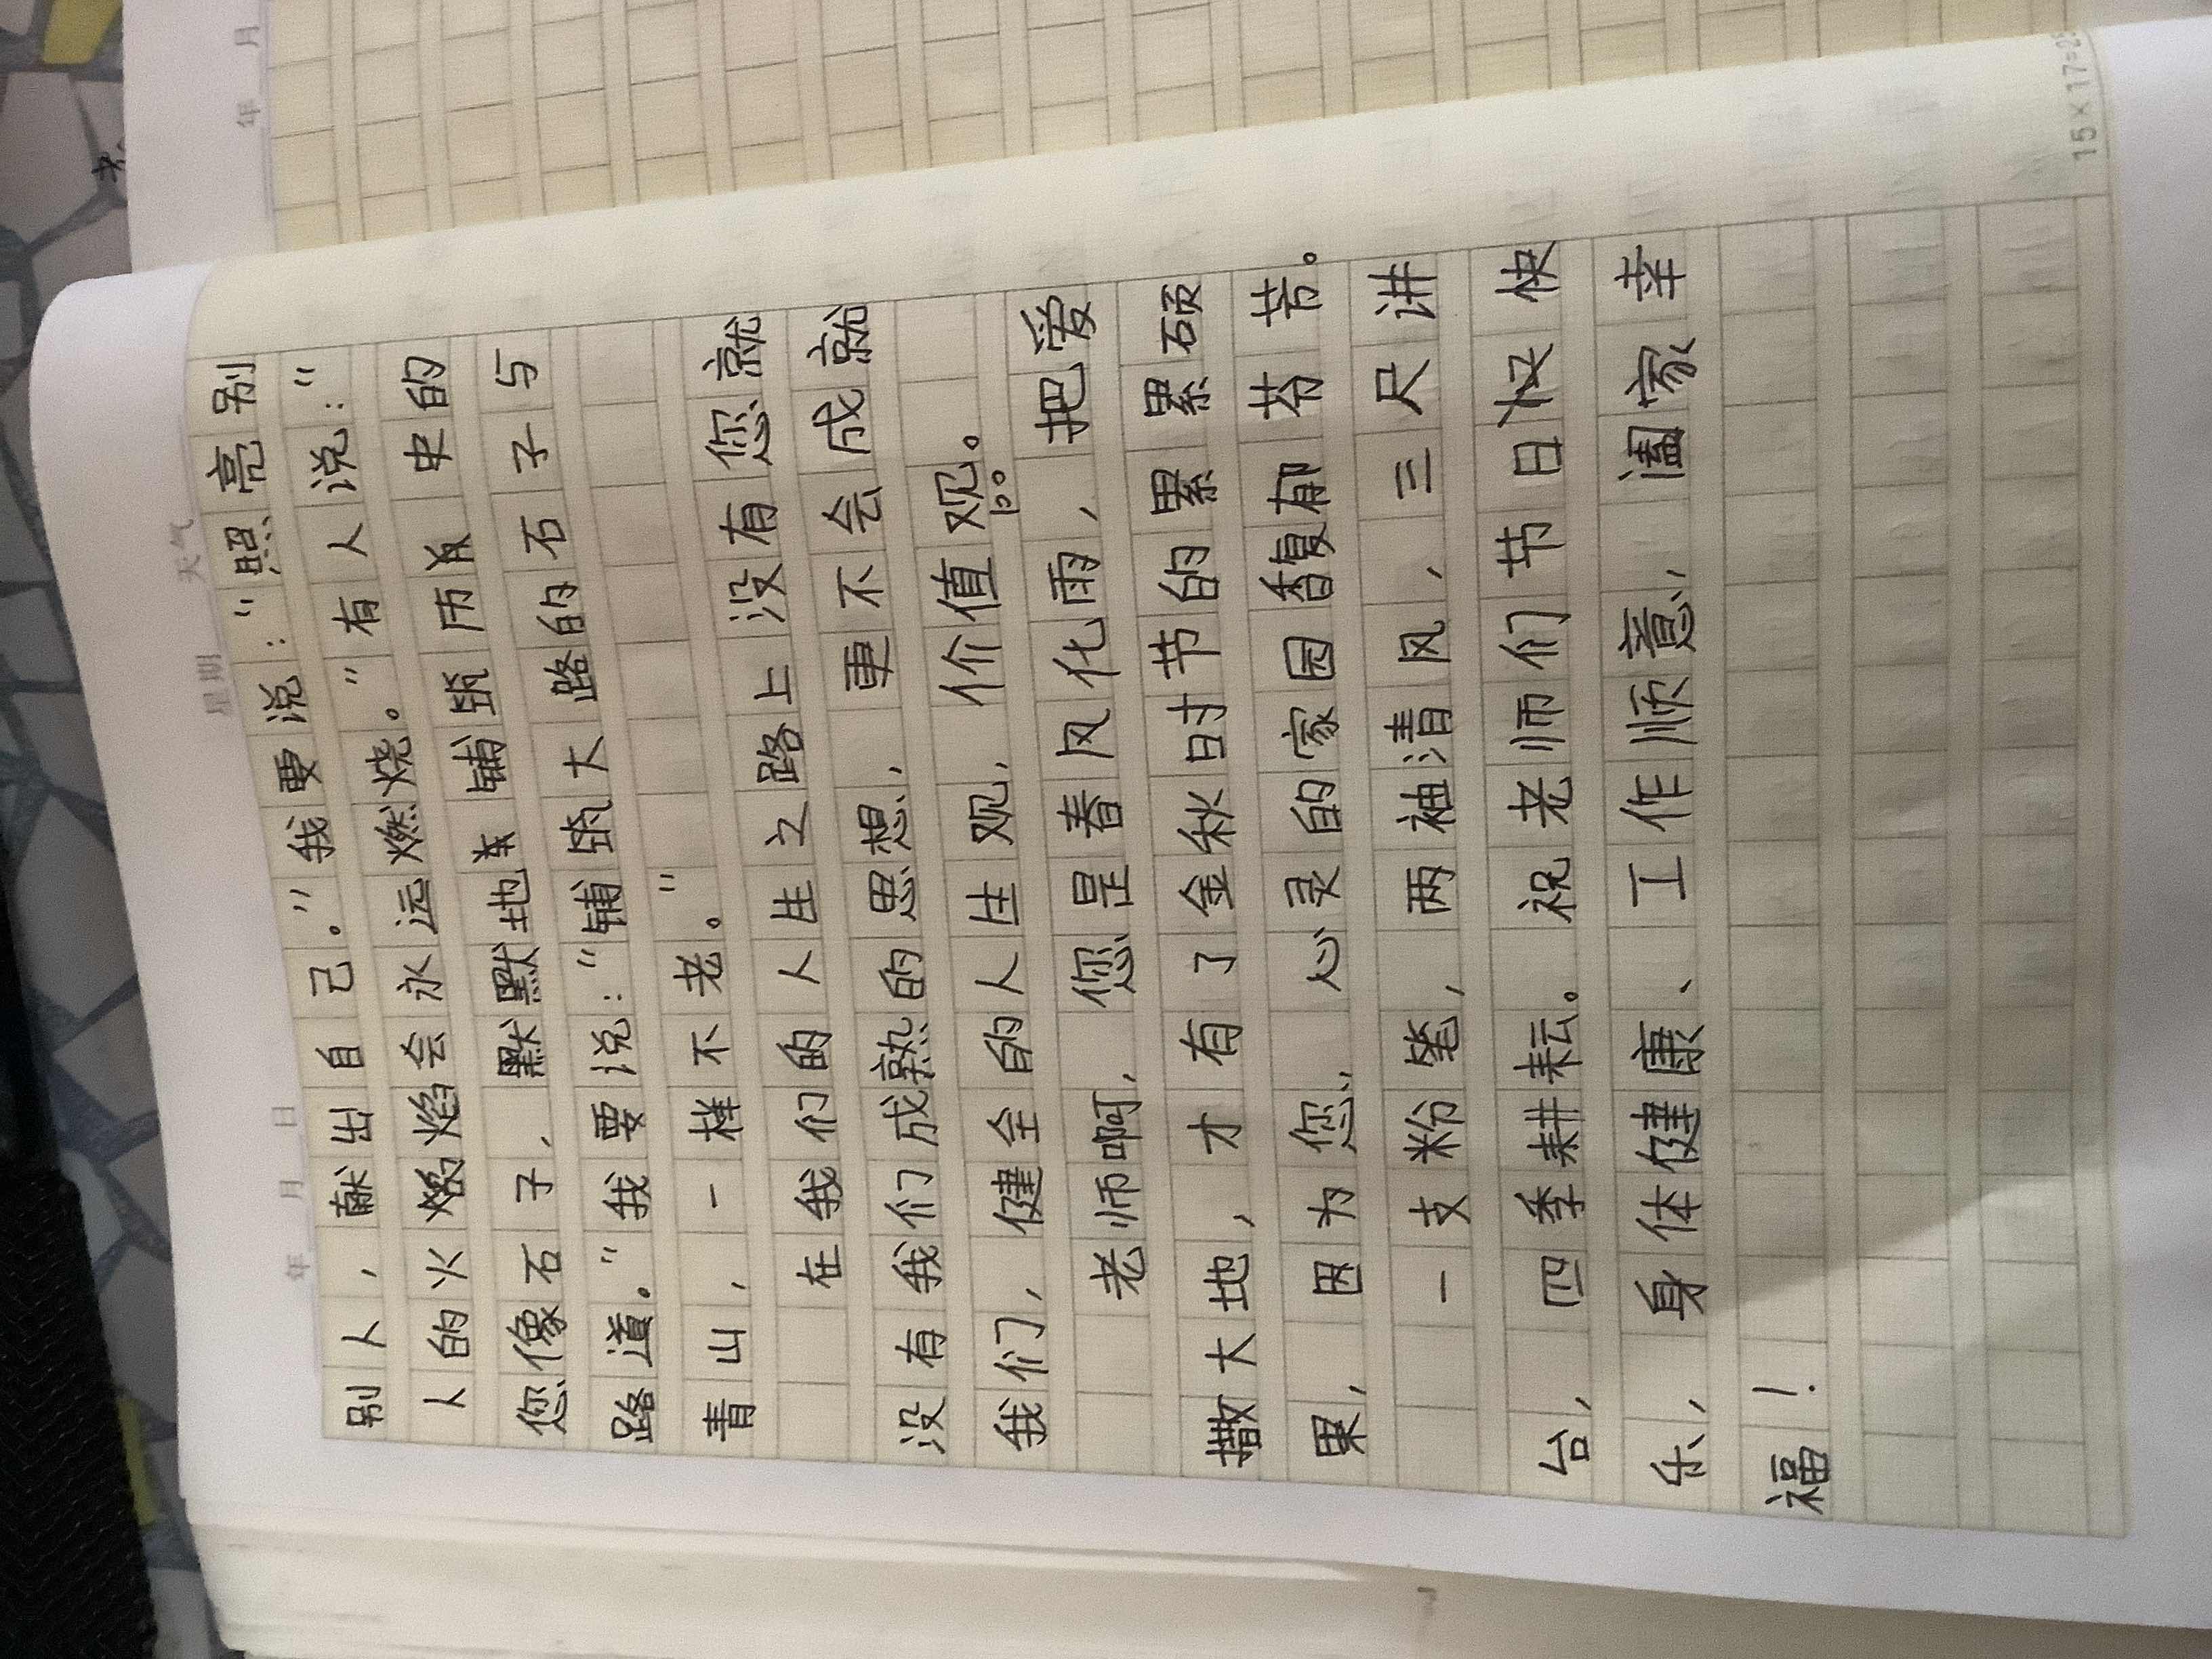 年 月 日 星期 天气
别人,献出自己。"我要说:"照亮别
人的火焰会永远燃烧。"有人说:"
您像石子,默默地铺筑历史的
路道。"我要说:"铺筑大路的石子与
青山,一样不老。"
在我们的人生之路上没有您就
没有我们成熟的思想,更不会成就
我们,健全的人生观,价值观。
老师啊,您是春风化雨,把爱
撒大地,才有了金秋时节的累累硕
果,因为您,心灵的家园馥郁芬芳。
一支粉笔,两袖清风,三尺讲
台,四季耕耘。祝老师们节日快
乐,身体健康、工作顺意,阖家幸
福!
15×17=25
年 月